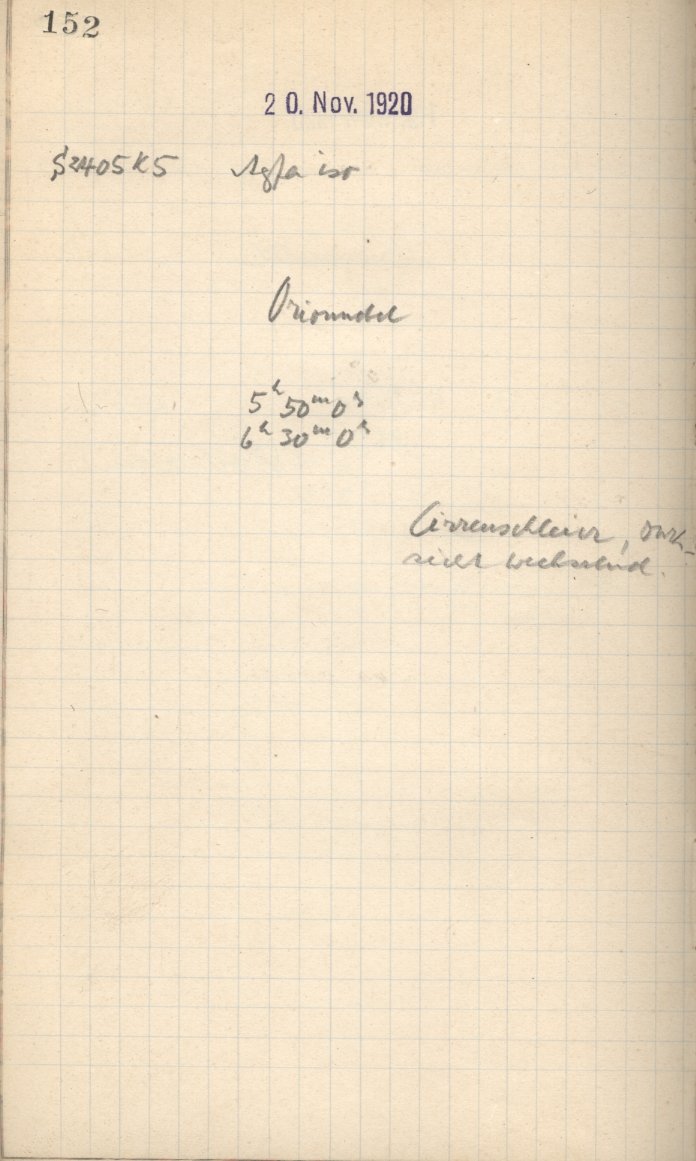 152
20. Nov. 1920
S2405K5 Agfa iso
Orionnebel
5h 50m 0s
6h 30m 0s
Cirrenschleier, Durch-
sicht wechselnd.